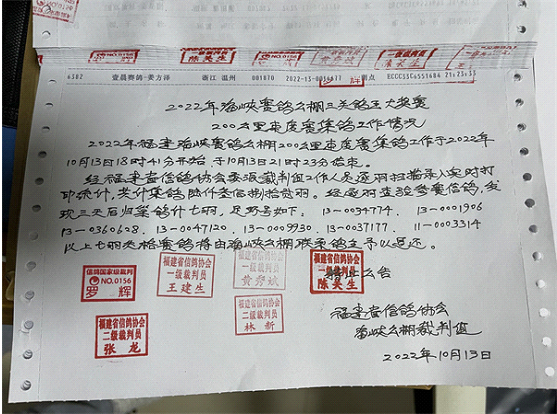 NO.0156
陈美生
一级裁判员
6382 壹晨赛鸽-姜方泽 浙江 温州 001870 2022-13-0036837 雨点 21:23:33
2022年海峡赛鸽公棚三关鸽王大奖赛
200公里速度赛集鸽工作情况
2022年福建海峡赛鸽公棚200公里速度赛集鸽工作于2022年
10月13日18时41分开始 于10月13日21时23分结束。
经福建省信鸽协会委派裁判组工作人员逐羽扫描录入实时打
印统计,共计集鸽陆仟叁佰捌拾贰羽。经逐羽查验参赛信鸽,发
现三关后归巢鸽计七羽,足环号如下。13-0034774、13-0001906
13-0360628、13-0047120、13-0009930、13-0037177、11-0003314
以上七羽失格赛鸽将由海峡公棚联系鸽主予以退还。
特此公告
信鸽国家级裁判
NO.0156
罗辉
福建省信鸽协会
一级裁判员
王建生
福建省信鸽协会
一级裁判员
黄秀斌
福建省信鸽协会
一级裁判员
陈美生
福建省信鸽协会
二级裁判员
张龙
福建省信鸽协会
二级裁判员
林新
福建省信鸽协会
海峡公棚裁判组
2022年10月13日